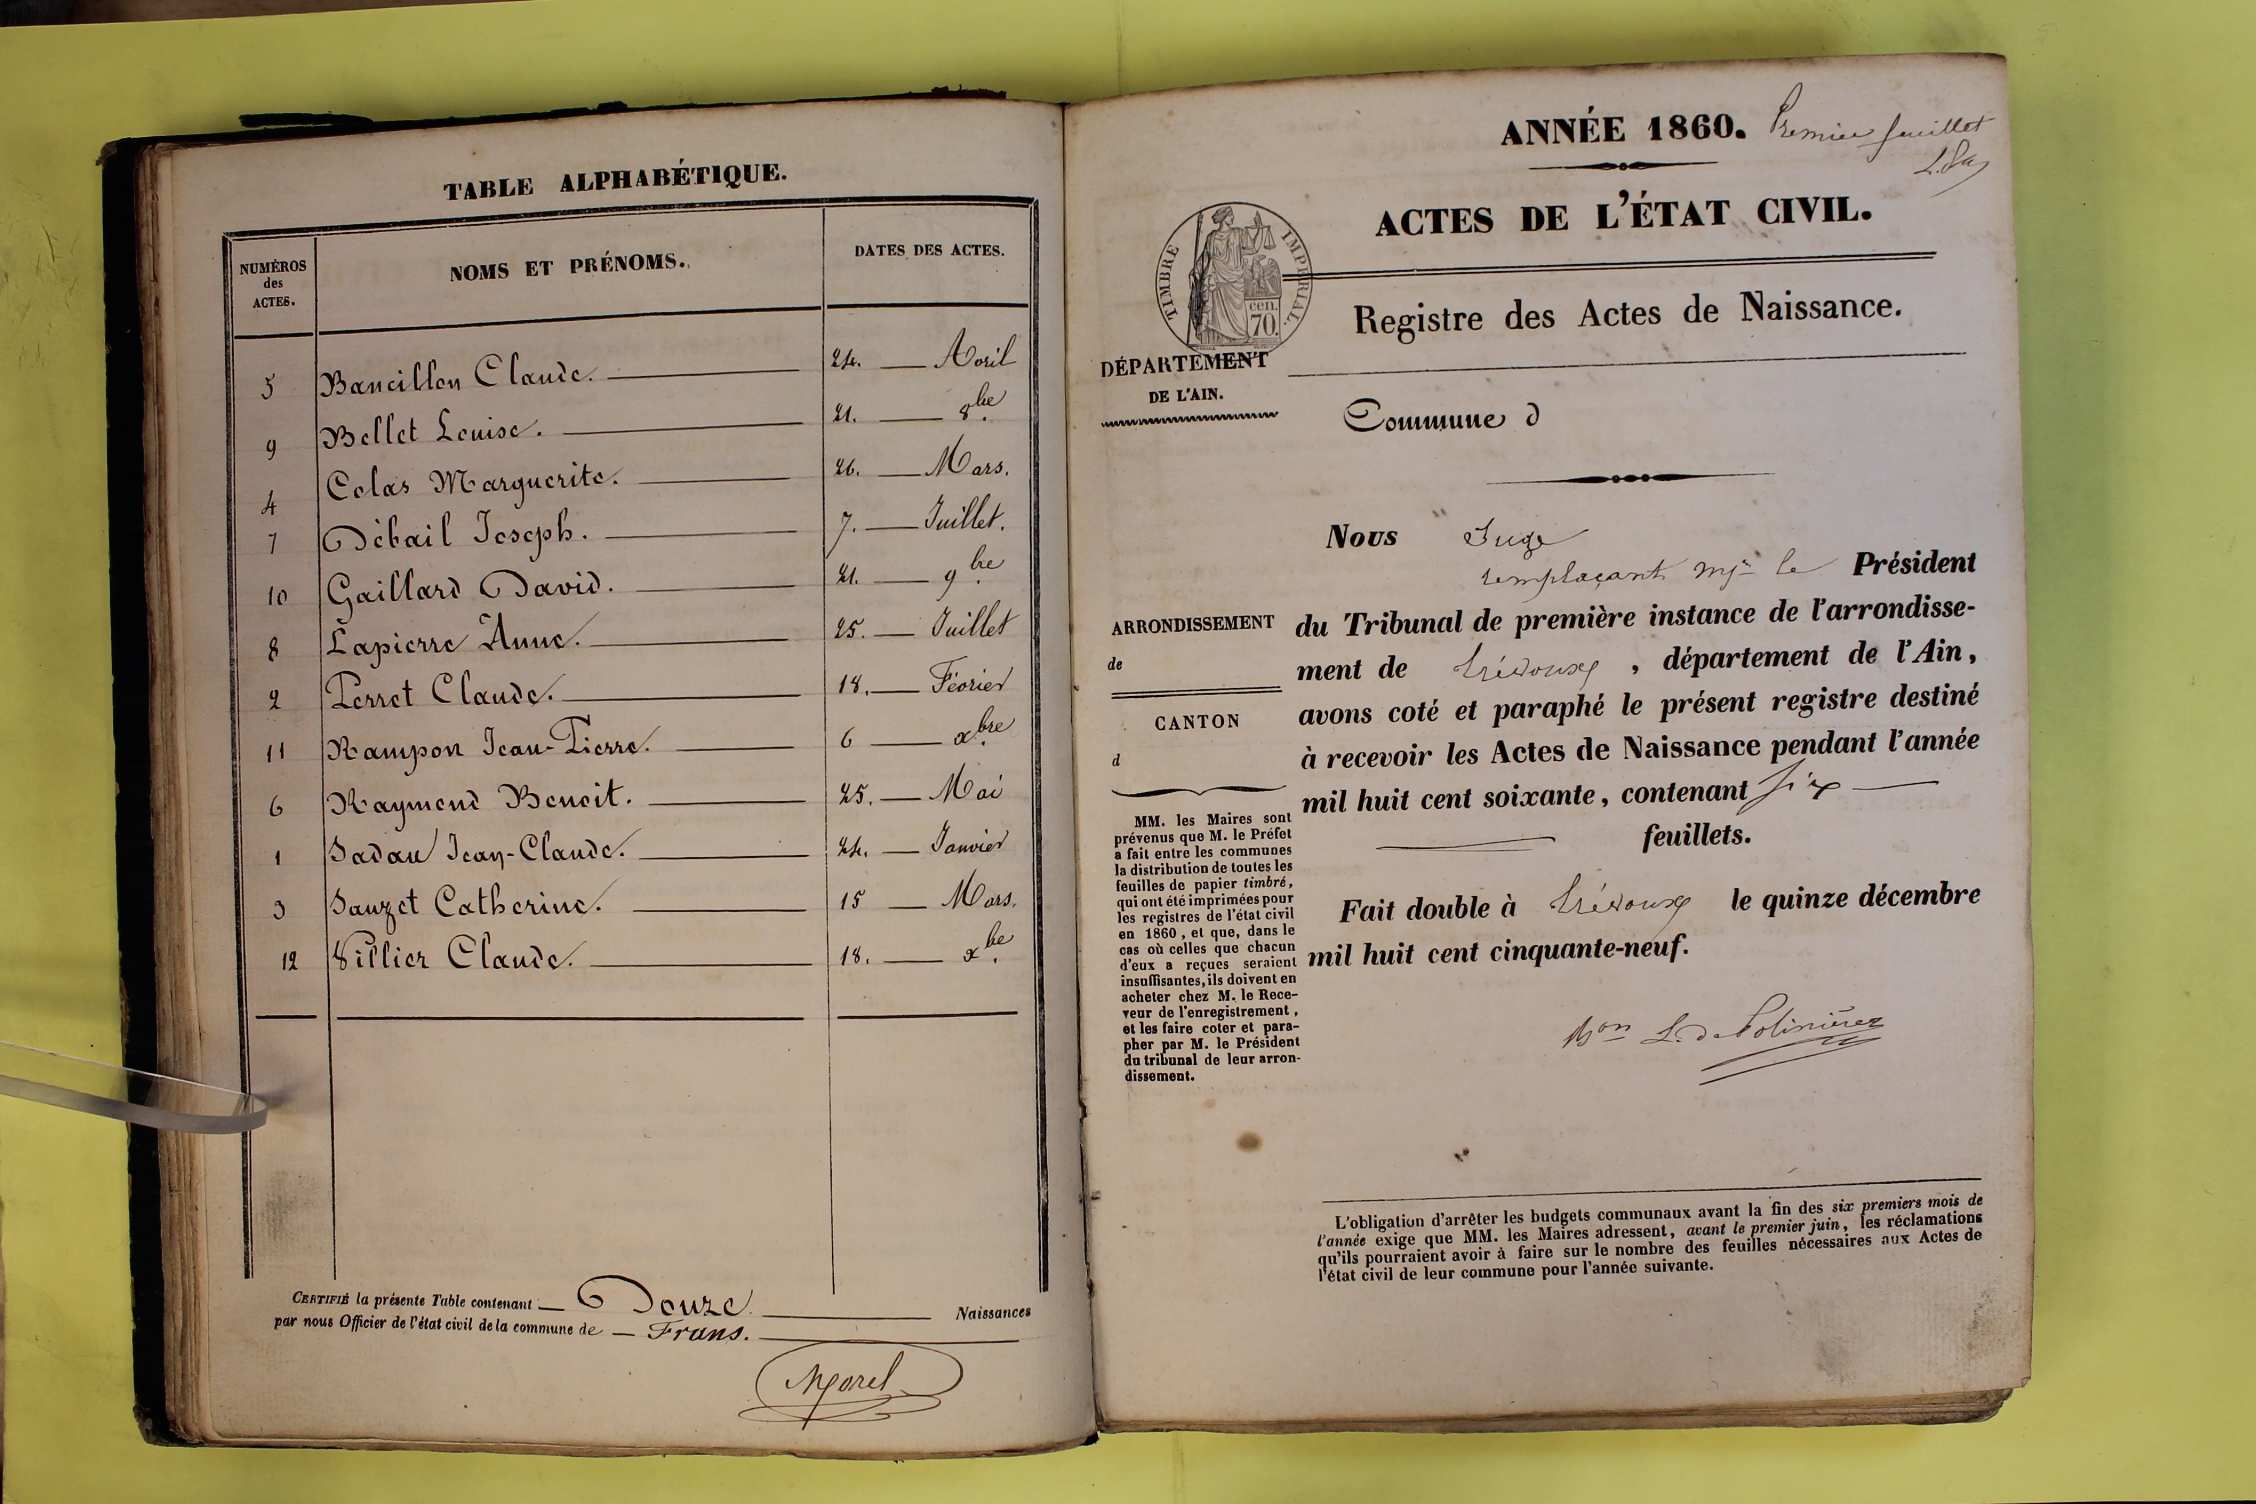 TABLE ALPHABÉTIQUE.
NUMÉROS
des
ACTES.
NOMS ET PRÉNOMS.
DATES DES ACTES.
5 Bancillon Claude. 24. Avril
9 Bellet Louise. 21. 8bre.
4 Colas Marguerite. 26. Mars.
7 Débail Joseph. 7. Juillet.
10 Gaillard David. 21. 9bre.
8 Lapierre Anne. 25. Juillet
2 Perret Claude. 18. Février
11 Rampon Jean-Pierre. 6 xbre.
6 Raymond Benoit. 25. Mai
1 Sadau Jean-Claude. 24. Janvier
3 Sauzet Catherine. 15 Mars.
12 Villier Claude. 18. xbre.
CERTIFIÉ la présente Table contenant Douze Naissances
par nous Officier de l'état civil de la commune de Frans.
Morel
ANNÉE 1860. Premier feuillet
ACTES DE L'ÉTAT CIVIL.
TIMBRE IMPÉRIAL.
cen.
70.
Registre des Actes de Naissance.
DÉPARTEMENT
DE L'AIN.
Commune d
Nous Juge
remplaçant Mr le Président
ARRONDISSEMENT
de
du Tribunal de première instance de l'arrondisse-
ment de Trévoux, département de l'Ain,
CANTON
d
avons coté et paraphé le présent registre destiné
à recevoir les Actes de Naissance pendant l'année
mil huit cent soixante, contenant six
feuillets.
MM. les Maires sont
prévenus que M. le Préfet
a fait entre les communes
la distribution de toutes les
feuilles de papier timbré,
qui ont été imprimées pour
les registres de l'état civil
en 1860, et que, dans le
cas où celles que chacun
d'eux a reçues seraient
insuffisantes, ils doivent en
acheter chez M. le Rece-
veur de l'enregistrement,
et les faire coter et para-
pher par M. le Président
du tribunal de leur arron-
dissement.
Fait double à Trévoux le quinze décembre
mil huit cent cinquante-neuf.
Bon L. de Polinière
L'obligation d'arrêter les budgets communaux avant la fin des six premiers mois de
l'année exige que MM. les Maires adressent, avant le premier juin, les réclamations
qu'ils pourraient avoir à faire sur le nombre des feuilles nécessaires aux Actes de
l'état civil de leur commune pour l'année suivante.